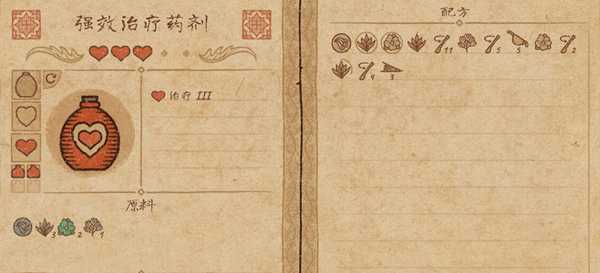 强效治疗药剂
治疗 III
原料
3 2 1
配方
11 5 5 2
4 3